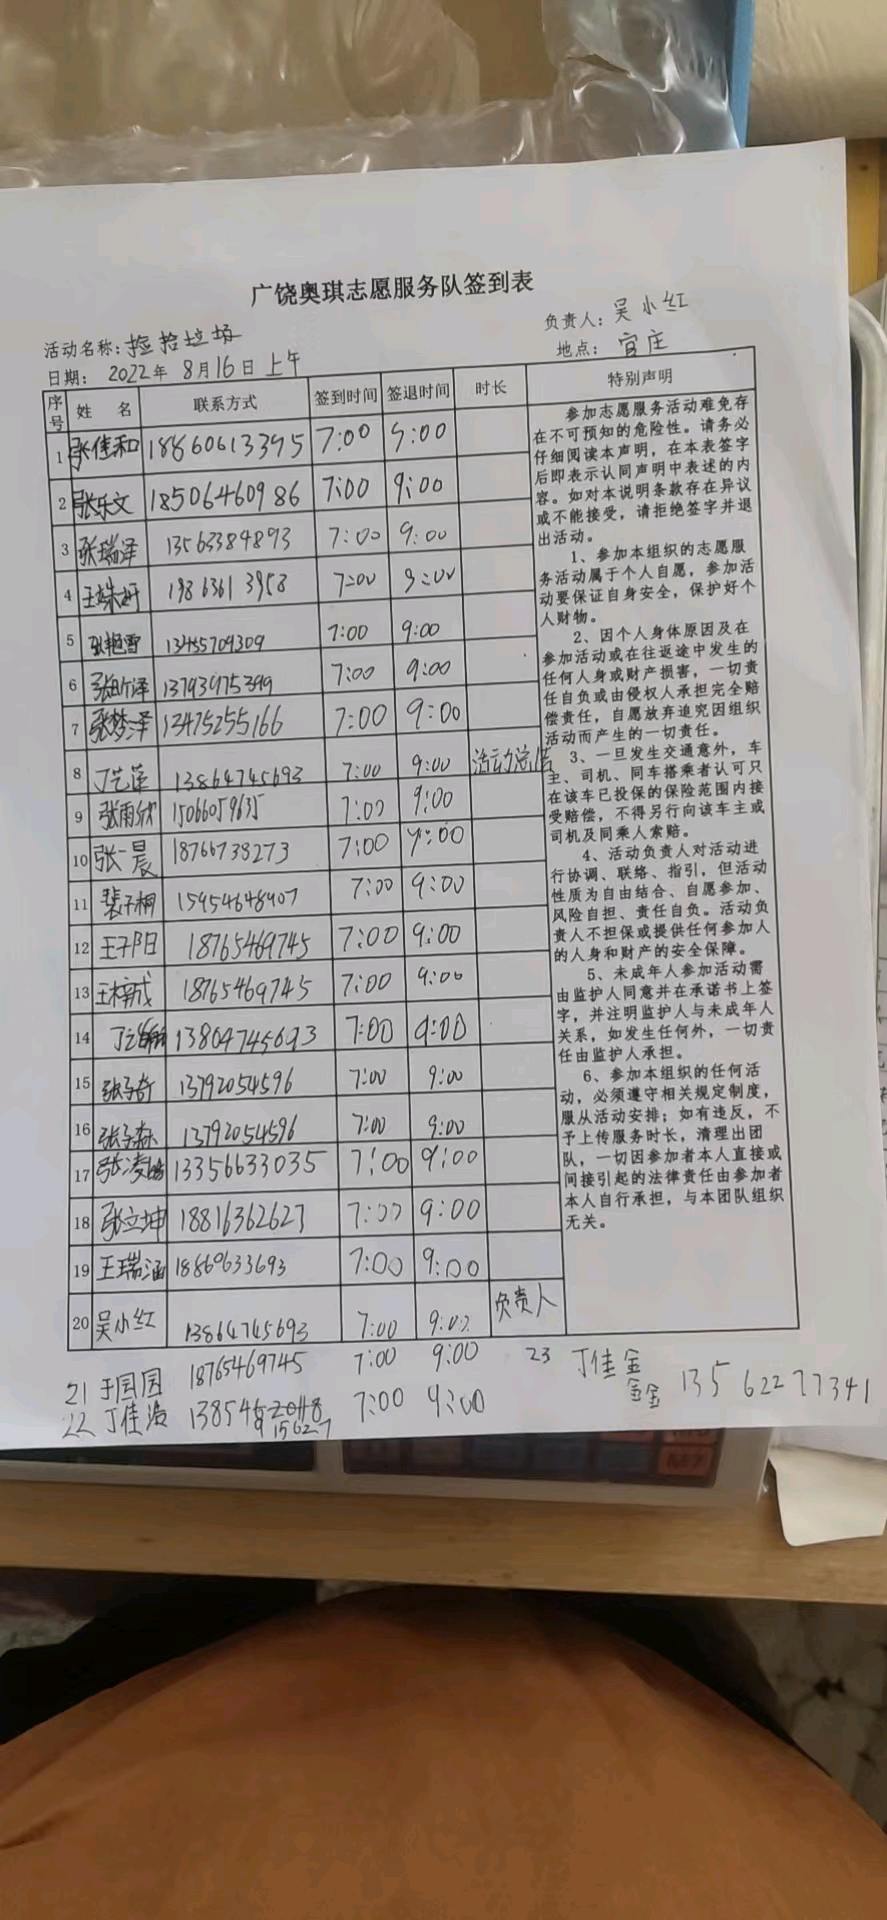 广饶奥琪志愿服务队签到表
活动名称：捡拾垃圾 负责人：吴小红
日期：2022年8月16日上午 地点：官庄
序号 姓 名 联系方式 签到时间 签退时间 时长 特别声明
1 张佳和 18860613395 7:00 9:00
2 张乐文 18506460986 7:00 9:00
3 张瑞泽 13563384893 7:00 9:00
4 198 6361 3958 7:00 9:00
5 张艳雪 13455709309 7:00 9:00
6 13793975399 7:00 9:00
7 张梦泽 13475255166 7:00 9:00
8 丁艺 13864745693 7:00 9:00 活动总结
9 张雨欣 15066059635 7:00 9:00
10 张一晨 18766738273 7:00 9:00
11 裴子桐 15954648907 7:00 9:00
12 王子阳 18765469745 7:00 9:00
13 王梓成 18765469745 7:00 9:00
14 13864745693 7:00 9:00
15 张子奇 13792054596 7:00 9:00
16 张子森 13792054596 7:00 9:00
17 张凌 13356633035 7:00 9:00
18 张立坤 18816362627 7:00 9:00
19 王瑞涵 18860633693 7:00 9:00
20 吴小红 13864745693 7:00 9:00 负责人
21 于园园 18765469745 7:00 9:00
22 丁佳浩 138546 7:00 9:00
915627
23 丁佳金
鑫 13562277341
参加志愿服务活动难免存
在不可预知的危险性。请务必
仔细阅读本声明，在本表签字
后即表示认同声明中表述的内
容。如对本说明条款存在异议
或不能接受，请拒绝签字并退
出活动。
1、参加本组织的志愿服
务活动属于个人自愿，参加活
动要保证自身安全，保护好个
人财物。
2、因个人身体原因及在
参加活动或在往返途中发生的
任何人身或财产损害，一切责
任自负或由侵权人承担完全赔
偿责任，自愿放弃追究因组织
活动而产生的一切责任。
3、一旦发生交通意外，车
主、司机、同车搭乘者认可只
在该车已投保的保险范围内接
受赔偿，不得另行向该车主或
司机及同乘人索赔。
4、活动负责人对活动进
行协调、联络、指引，但活动
性质为自由结合、自愿参加、
风险自担、责任自负。活动负
责人不担保或提供任何参加人
的人身和财产的安全保障。
5、未成年人参加活动需
由监护人同意并在承诺书上签
字，并注明监护人与未成年人
关系，如发生任何外，一切责
任由监护人承担。
6、参加本组织的任何活
动，必须遵守相关规定制度，
服从活动安排；如有违反，不
予上传服务时长，清理出团
队，一切因参加者本人直接或
间接引起的法律责任由参加者
本人自行承担，与本团队组织
无关。